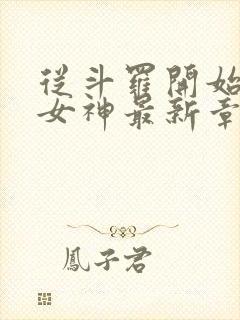 從斗羅開始
女神最新章
鳳子君